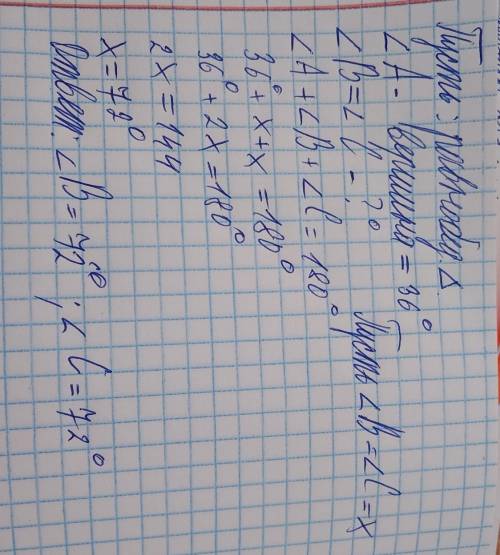 Пусть: равноб Δ.
∠A - вершина = 36°
∠B = ∠C - ?°
Пусть ∠B = ∠C = x
∠A + ∠B + ∠C = 180°
36° + x + x = 180°
36° + 2x = 180°
2x = 144
x = 72°
Ответ: ∠B = 72°; ∠C = 72°